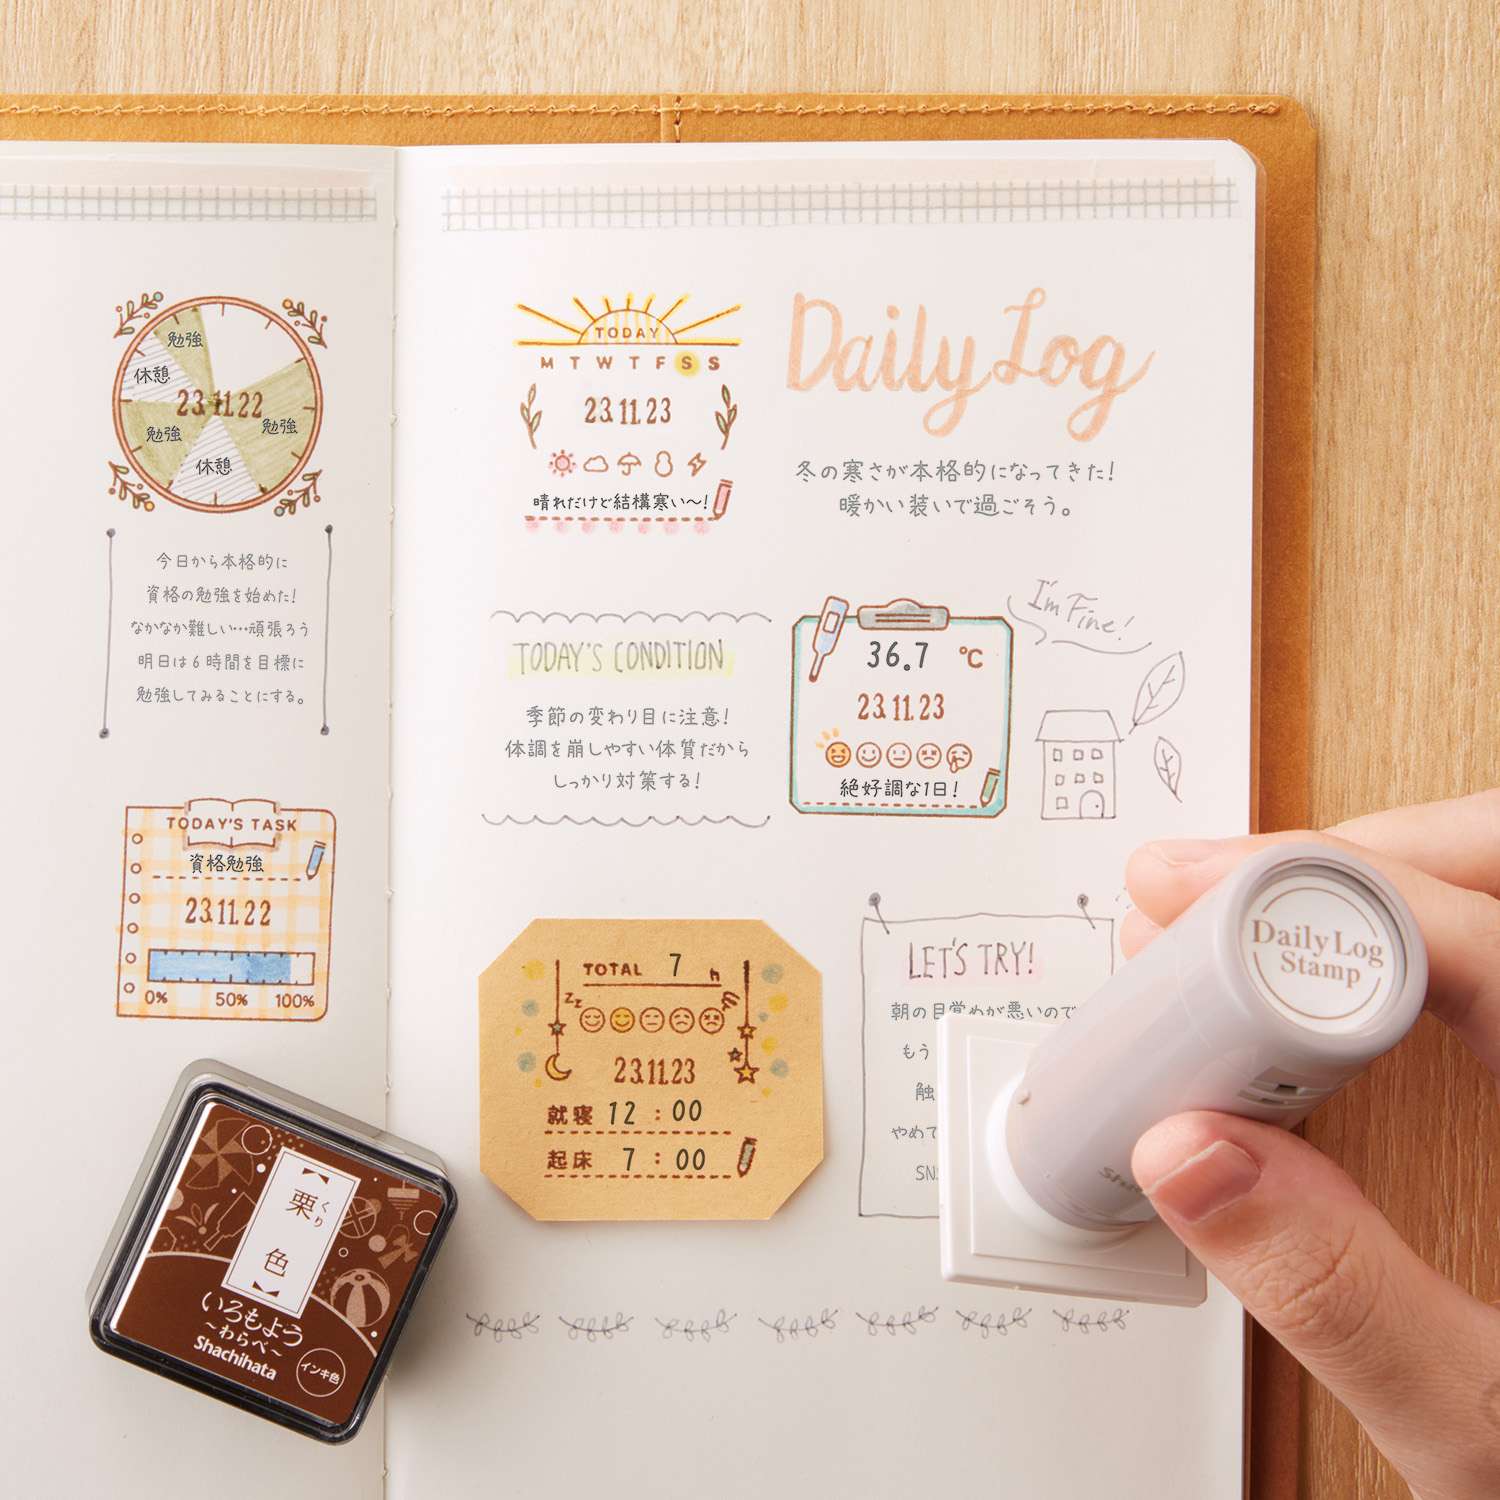 勉強
休憩
23.11.22
勉強
勉強
休憩
今日から本格的に
資格の勉強を始めた!
なかなか難しい…頑張ろう
明日は6時間を目標に
勉強してみることにする。
TODAY'S TASK
資格勉強
23.11.22
0% 50% 100%
栗
くり
色
いろもよう
~わらべ~
Shachihata
インキ色
TODAY
M T W T F S S
23.11.23
晴れだけど結構寒い~!
Daily Log
冬の寒さが本格的になってきた!
暖かい装いで過ごそう。
TODAY'S CONDITION
季節の変わり目に注意!
体調を崩しやすい体質だから
しっかり対策する!
36.7 ℃
23.11.23
絶好調な1日!
I'm Fine!
TOTAL 7 h
zz
23.11.23
就寝 12:00
起床 7:00
LET'S TRY!
朝の目覚めが悪いので
もう
触
やめて
SNS
Daily Log
Stamp